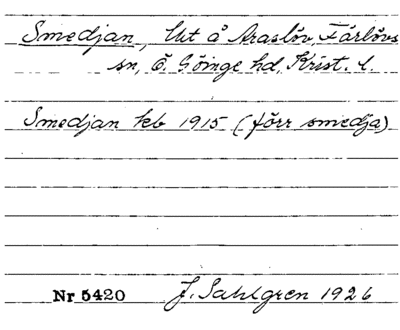 Smedjan, Ut å Araslöv, Färlövs
sn, Ö Göinge hd, Krist. l.
Smedjan keb 1915 (förr smedja)
Nr 5420 J. Sahlgren 1926